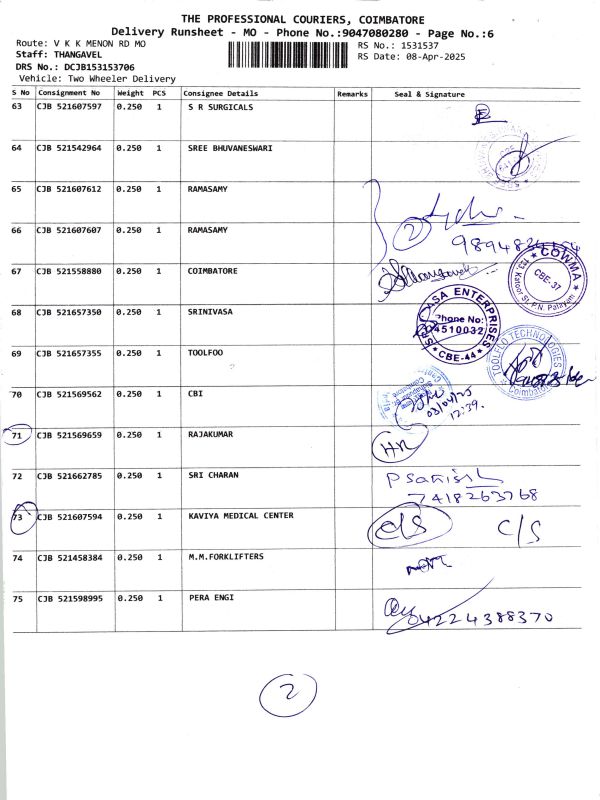 THE PROFESSIONAL COURIERS, COIMBATORE
Delivery Runsheet - MO - Phone No.:9047080280 - Page No.:6
Route: V K K MENON RD MO
RS No.: 1531537
Staff: THANGAVEL
RS Date: 08-Apr-2025
DRS No.: DCJB153153706
Vehicle: Two Wheeler Delivery
S No Consignment No Weight PCS Consignee Details Remarks Seal & Signature
63 CJB 521607597 0.250 1 S R SURGICALS
64 CJB 521542964 0.250 1 SREE BHUVANESWARI
65 CJB 521607612 0.250 1 RAMASAMY
66 CJB 521607607 0.250 1 RAMASAMY
2
67 CJB 521558880 0.250 1 COIMBATORE
COWMA
CBE-37
68 CJB 521657350 0.250 1 SRINIVASA
ENTERPRISES
Phone No:
4510032
CBE-44
69 CJB 521657355 0.250 1 TOOLFOO
TOOLFLO TECHNOLOGIES
Coimbatore
70 CJB 521569562 0.250 1 CBI
03/04/25
12:39.
71 CJB 521569659 0.250 1 RAJAKUMAR
HR
72 CJB 521662785 0.250 1 SRI CHARAN
P Sathish
7418263768
73 CJB 521607594 0.250 1 KAVIYA MEDICAL CENTER
C/S C/S
74 CJB 521458384 0.250 1 M.M.FORKLIFTERS
75 CJB 521598995 0.250 1 PERA ENGI
04224388370
2